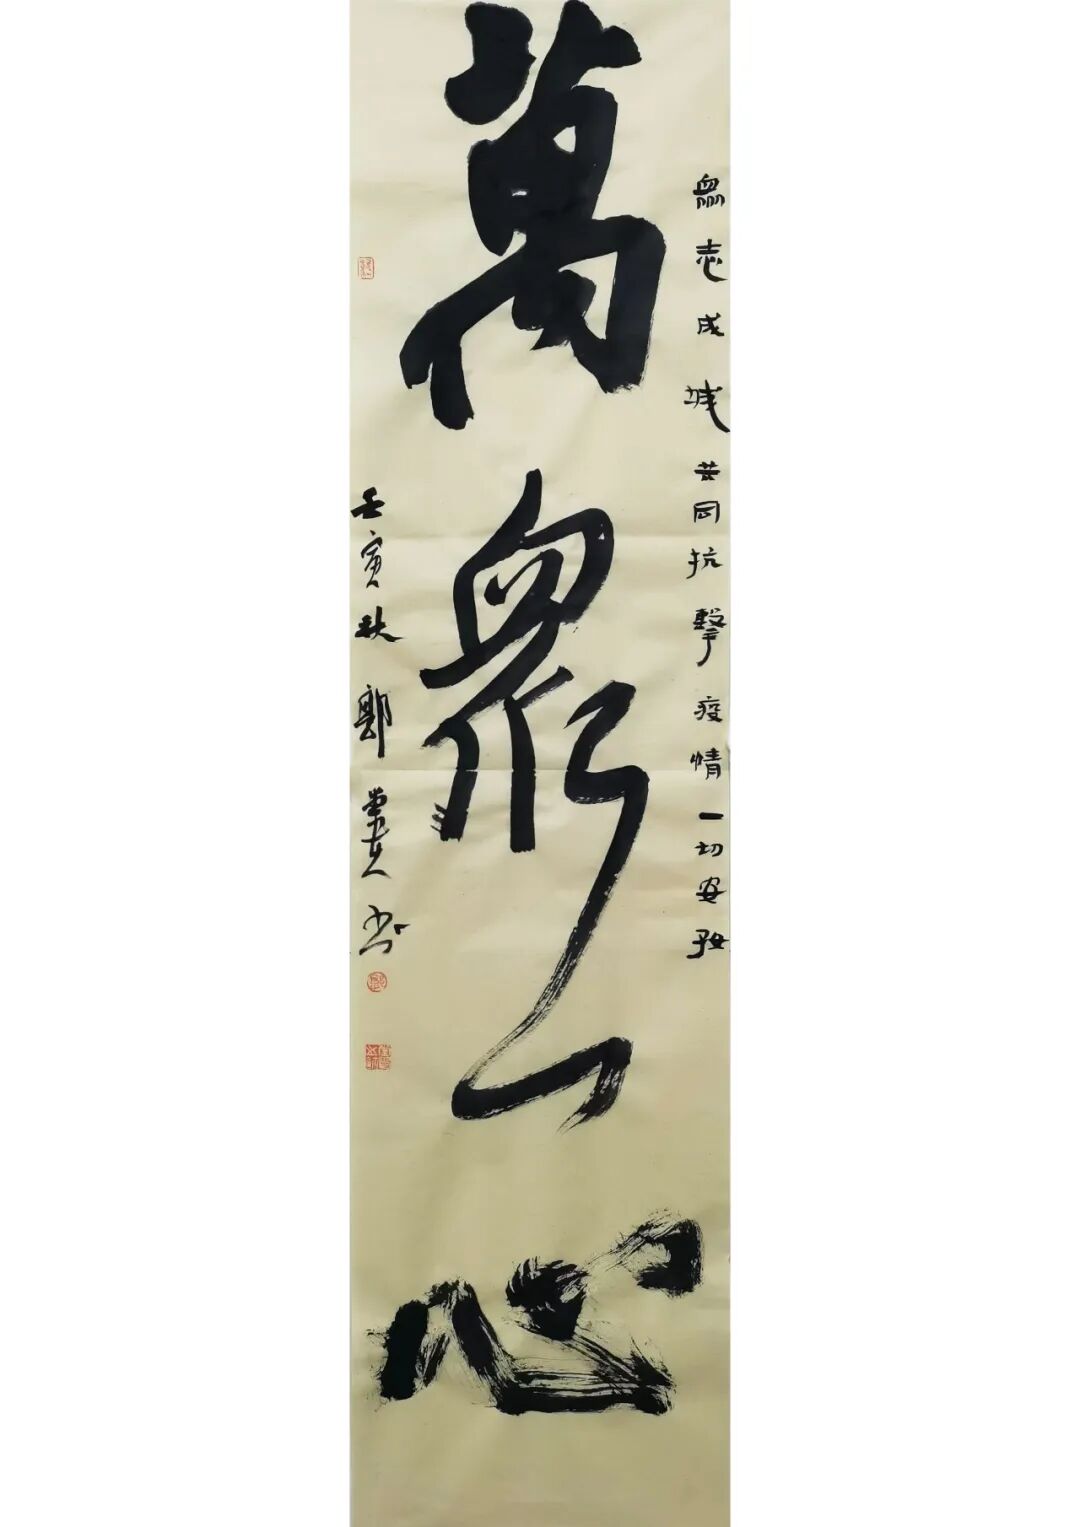 衆志成城共同抗擊疫情一切安好
萬衆一心
壬寅秋書